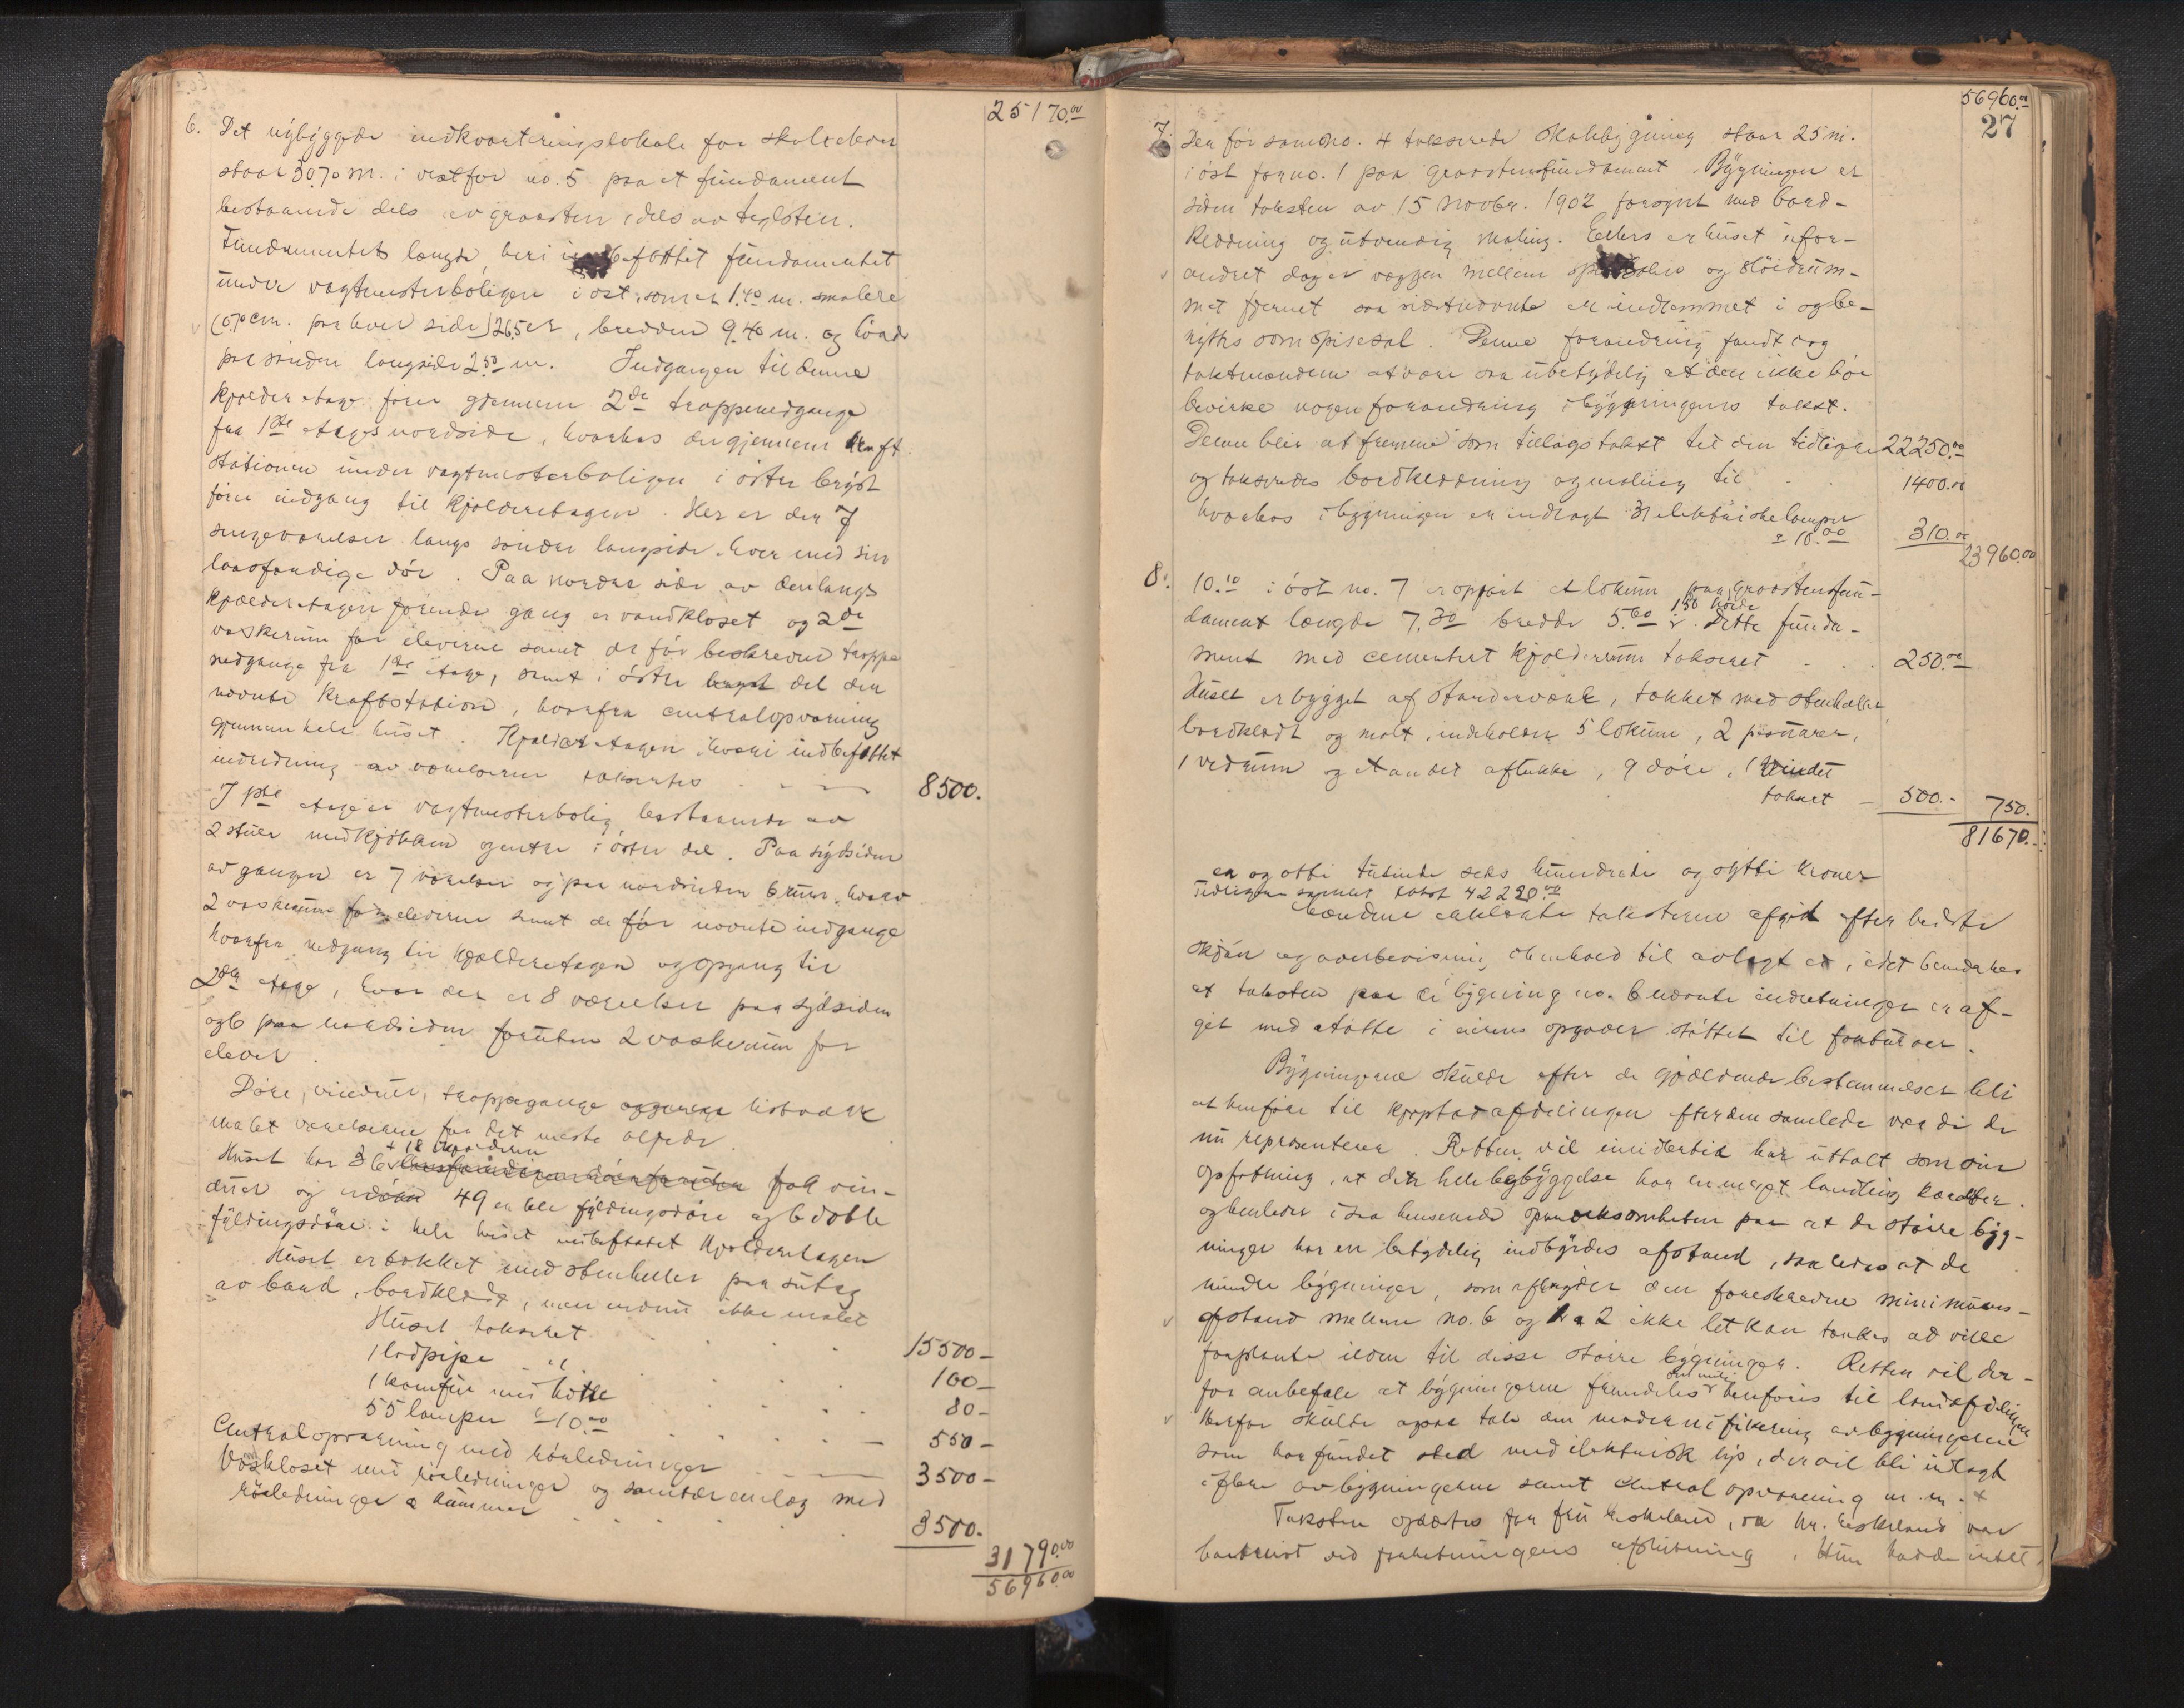 25170.00
6. Det nybyggede indkvarteringslokale for skoleelever
staar 30.70 m. i vest for no. 5 paa et fundament
bestaaende dels av graasten, dels av teglsten.
Fundamentets længde, heri indbefattet fundamentet
under vagtmesterboligen i öst, som er 1.40 m. smalere
(0.70 cm. paa hver side) 26.5 er, bredden 9.40 m. og höid
paa söndre langside 2.50 m. Indgangen til denne
kjælderetage förer gjennem 2de trappenedgange
fra 1ste etages nordside, hvorhos der gjennem kraft
stationen under vagtmesterboligen i östre
förer indgang til kjælderetagen. Her er der 7
værelser langs söndre langside hver med sin
laasfærdige dör. Paa nordre side av den langs
kjælderetagen förende gang er vandkloset og 2de
vaskerum for eleverne samt de för beskrevne trappe
nedgange fra 1ste etage, samt i östre del den
nævnte kraftstation, hvorfra centralopvarming
gjennem hele huset. Kjælderetagen hvori indbefattet
indredning av værelserne takseres 8500.
I 1ste etage er vagtmesterbolig bestaaende av
2 stuer med kjökken og entre i östre del. Paa sydsiden
av gangen er 7 værelser og paa nordsiden 6 rum, hvorav
2 vaskerum for eleverne samt de för nævnte indgange
hvorfra nedgang til kjælderetagen og opgang til
2den etage, hvor der er 8 værelser paa sydsiden
og 6 paa nordsiden foruten 2 vaskerum for
elever.
Döre, vinduer, trappegange listværk
malt værelserne for det meste oljede.
+ 18 i kjælderen
Huset har 36 fag vin-
duer og 49 enkle fyldingsdöre og 6 doble
fyldingsdöre i hele huset indbefattet kjælderetagen
Huset er tækket med stenheller paa sutag
av bord, bordklædt, men endnu ikke malet
Huset takseret 15500 –
1 lodpipe 160 –
1 komfur med hætte 80 –
55 lamper à 10.00 550 –
Centralopvarming med rörledninger 3500 –
Vaskloset med rörledninger og sanitæranlæg med
rörledninger & kummer 3500.
31790.00
56960.00
56960.00
27
7. Den för som no. 4 takserede skolebygning staar 25 m.
i öst for no. 1 paa graastensfundament. Bygningen er
siden taksten av 15 novbr. 1902 forsynt med bord-
klædning og utvendig maling. Ellers er huset ufor-
andret dog er væggen mellem og slöidrum-
met fjernet saa sidstnævnte er indlemmet i og be-
nyttes som spisesal. Denne forandring fandt dog
takstmændene at være saa ubetydelig at den ikke bör
bevirke nogen forandring i bygningens takst.
Denne blir at fremme som tillægstakst til den tidligere 22250.00
og takseredes bordklædning og maling til 1400.00
hvorhos i bygningen er indlagt 31 elektriske lamper
à 10.00 310.00
23960.00
8. 10.10 i öst no. 7 er opfört et lokum paa graastensfun-
150 höide
dament længde 7.30 bredde 5.60. Dette funda-
ment med cementert kjælderrum takseret 250.00
Huset er bygget af standerværk, tækket med stenheller
bordklædt og malt, indeholder 5 lokum, 2 pissoarer,
1 vedrum og et andet aflukke, 9 döre, 1 vindu
takseret – 500.– 750.
81670.–
en og otti tusinde seks hundrede og sytti kroner
Tidligere samlet takst 42220.00
Mændene erklærte taksterne afgit efter bedste
skjön og overbevisning i henhold til avlagt ed, idet bemærkes
at taksten paa de i bygning no. 6 nævnte indretninger er af-
git med stötte i eierens opgaver stöttet til fakturaer.
Bygningerne skulde efter de gjældende bestemmelser bli
at henföre til kjøpstadafdelingen efter den samlede værdi de
nu representerer. Retten vil imidlertid ha uttalt som sin
opfatning, at den hele bebyggelse har en meget landlig karakter
og henleder i saa henseende opmerksomheten paa at de större byg-
ninger har en betydelig indbyrdes afstand, saaledes at de
mindre bygninger, som afbryder den foreskrevne minimums-
afstand mellem no. 6 og 1 & 2 ikke let kan tænkes at ville
forplante ilden til disse större bygninger. Retten vil der-
for anbefale at bygningerne fremdeles henföres til landafdelingen
Herfor skulde ogsaa tale den modernisering av bygningerne
som har fundet sted med elektrisk lys, der vil bli indlagt
i flere av bygningerne samt centralopvarming m. m.
Taksten oplæstes for fru Eskeland, da hr. Eskeland var
bortreist ved forretningens afslutning. Hun hadde intet